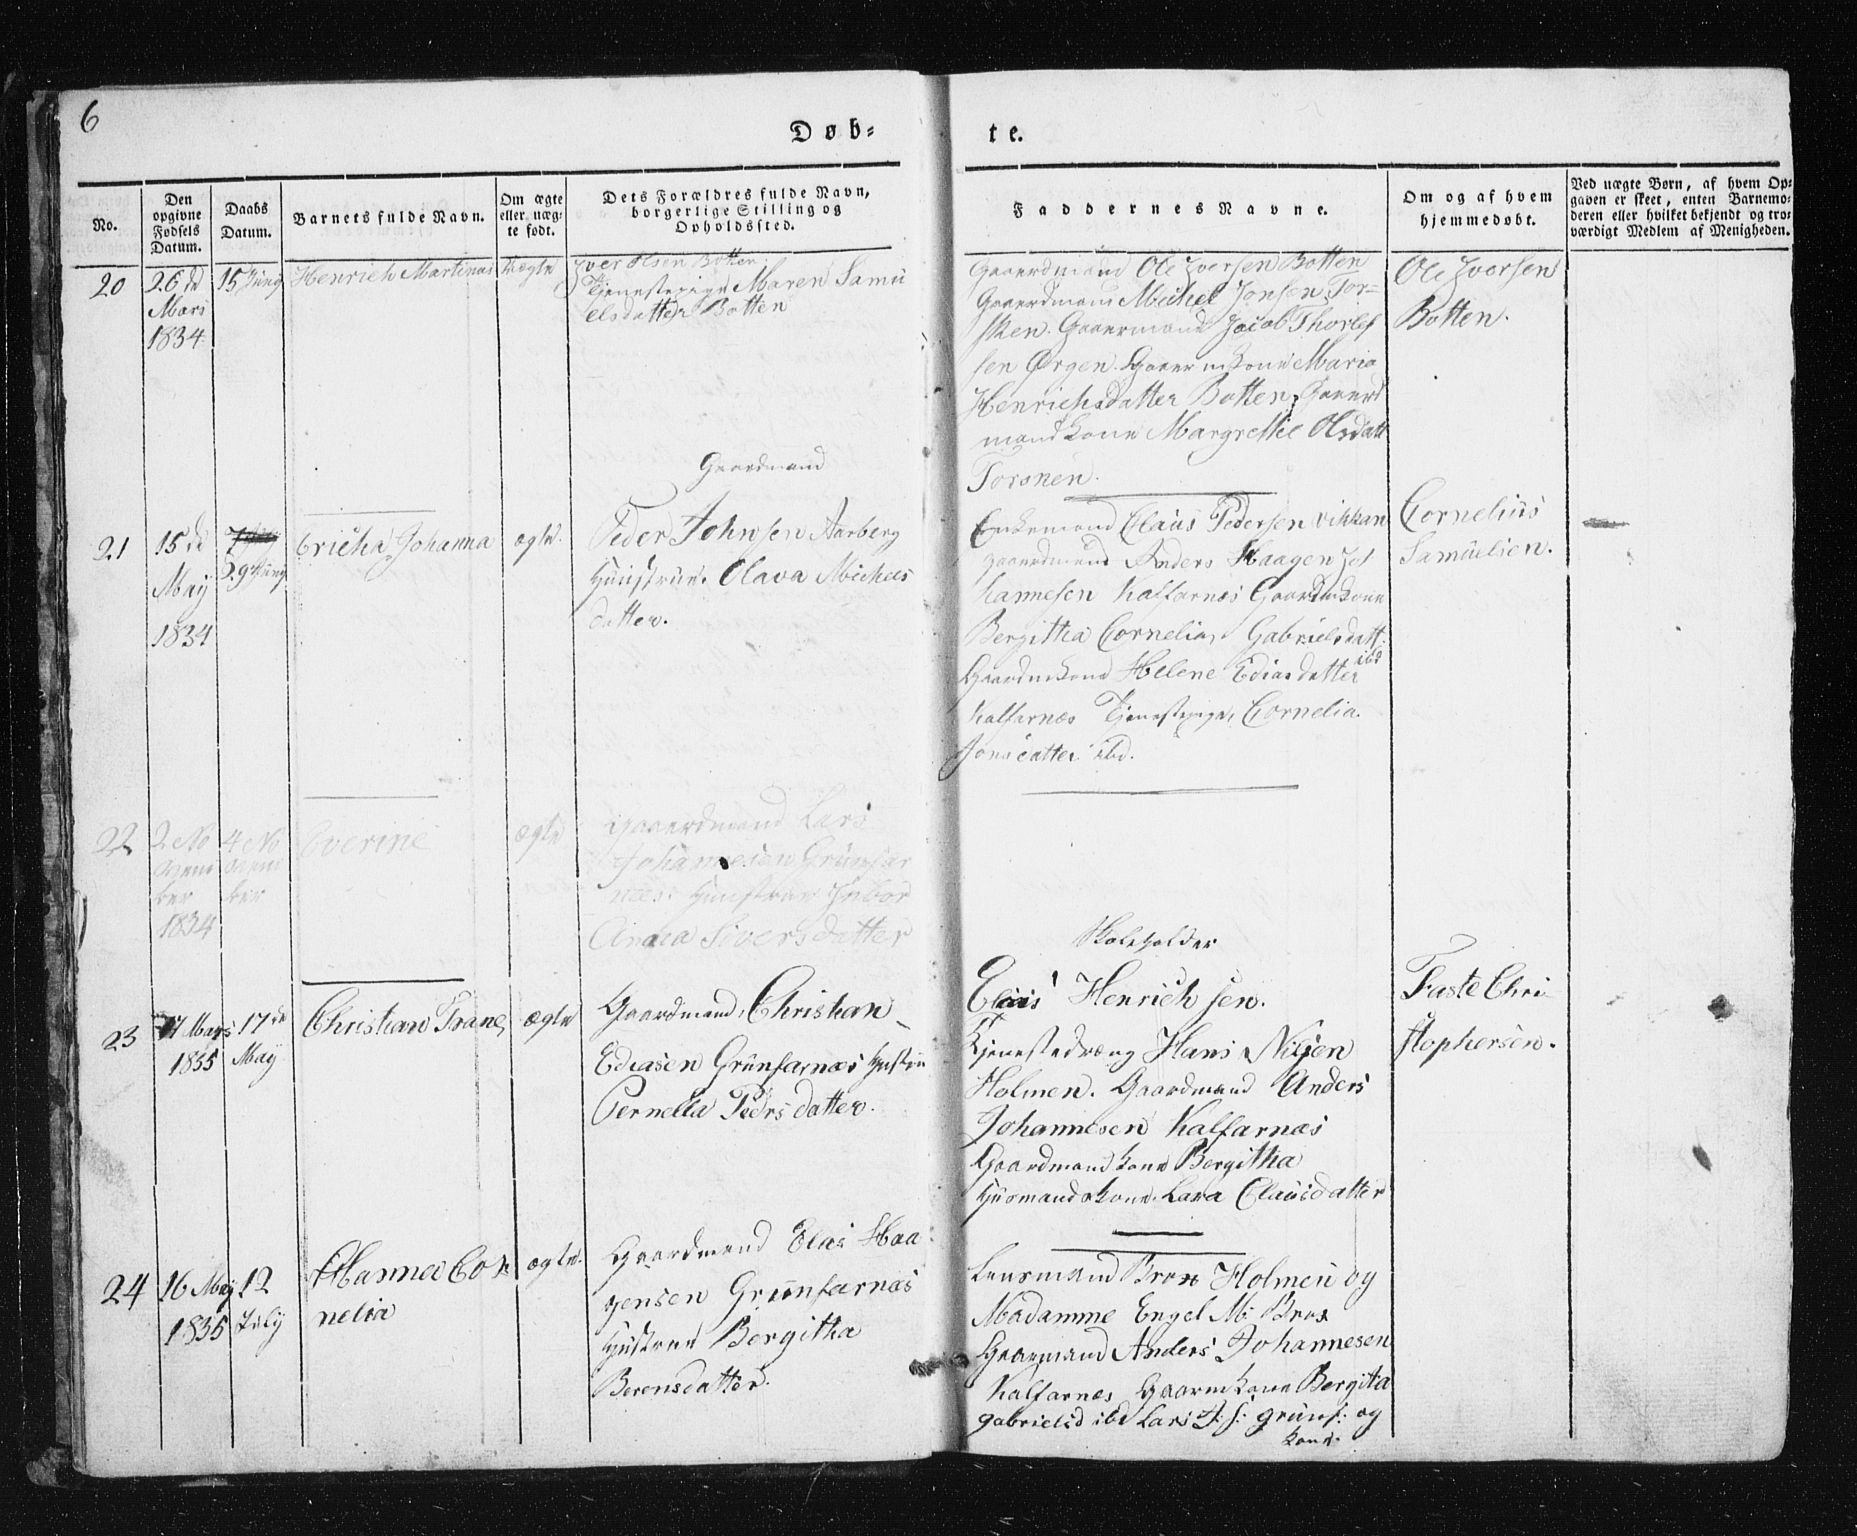 6
Døb-
te.
No.
Den opgivne Fødsels Datum.
Daabs Datum.
Barnets fulde Navn.
Om ægte eller uægte født.
Dets Forældres fulde Navn, borgerlige Stilling og Opholdssted.
Faddernes Navne.
Om og af hvem hjemmedøbt.
Ved uægte Børn, af hvem Opgaven er skeet, enten Barnemoderen eller hvilket bekjendt og troværdigt Medlem af Menigheden.
20
26de
Mars
1834
15 Juny
Henrich Martinus
Uægte
Iver Olsen Botten
Tjenestepige Maren Samu
elsdatter Botten
Gaardmand Ole Iversen Botten
Gaardmand Michel Jonsen Tor-
sken. Gaarmand Jacob Thorles
sen Ørgen. Gaarmkone Maria
Henrichsdatter Botten, Gaard
mandkone Margrethe Olsdatt
Torsnen.
Ole Iversen
Botten.
21
15de
May
1834
29 Juny
Ericha Johanna
ægte.
Gaardmand
Peder Johnsen Aarberg
Hustrue. Olava Michels
datter.
Enkemand Claus Pedersen Vikkan
Gaardmand Anders Haagen Jo
hannesen Kalfarnæs Gaardmkone
Bergitha Cornelia, Gabrielsdatt.
ibd
Gaardmkone Helene Ediasdatter
Kalfarnæs Tjenestepige, Cornelia
Jonsdatter ibd.
Cornelius
Samuelsen.
22
2 No
vem
ber
1834
4 No
vem
ber
Everine
ægte
Gaardmand Lars
Johannesen Grünfar
næs. Hunstrue Inbor
Anna Siversdatter
23
17 Mars
1835
17de
May
Christian Trane
ægte
Gaardmand, Christian
Ediasen Grünfarnæs Hustru
Pernella Pedrsdatter.
Skoleholder
Elias Henrichsen.
Tjenestedræng Hans Nilsen
Holmen. Gaardmand Anders
Johannesen Kalfarnæs
Gaardmandkone Bergitha
Husmandskone. Lava Clausdatter
Faste Chri
stophersen.
24
16 May
1835
12
July
Hanna Cor
nelia
ægte.
Gaardmand Elias Haa
gensen Grünfarnæs
Hustrue Bergitha
Berensdatter.
Lensmand Brox Holmen og
Madamme Engel M: Brox
Gaarmand Anders Johannesen
Kalfarnæs Gaarmkone Bergita
Gabrielsd ibd Lars J: S: Grünf: og
kone.